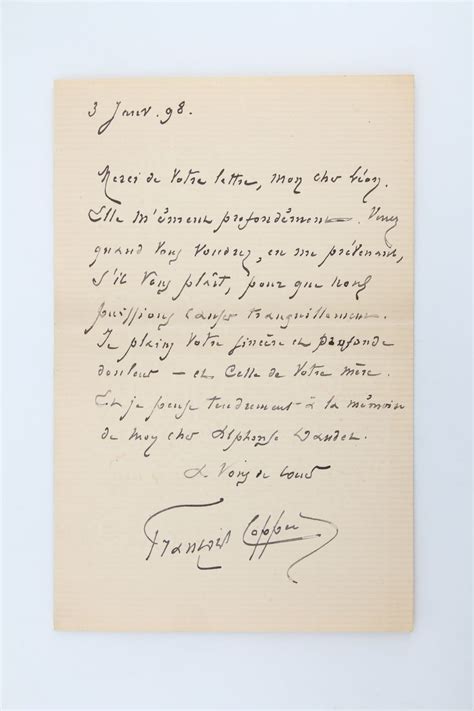 3 Janv. 98.
Merci de votre lettre, mon cher Léon.
Elle m'émeut profondément. Venez
quand vous voudrez, en me prévenant,
s'il vous plaît, pour que nous
puissions causer tranquillement.
Je plains votre sincère et profonde
douleur — et celle de votre mère.
Et je pense tendrement à la mémoire
de mon cher Alphonse Daudet.
A vous de cœur
François Coppée